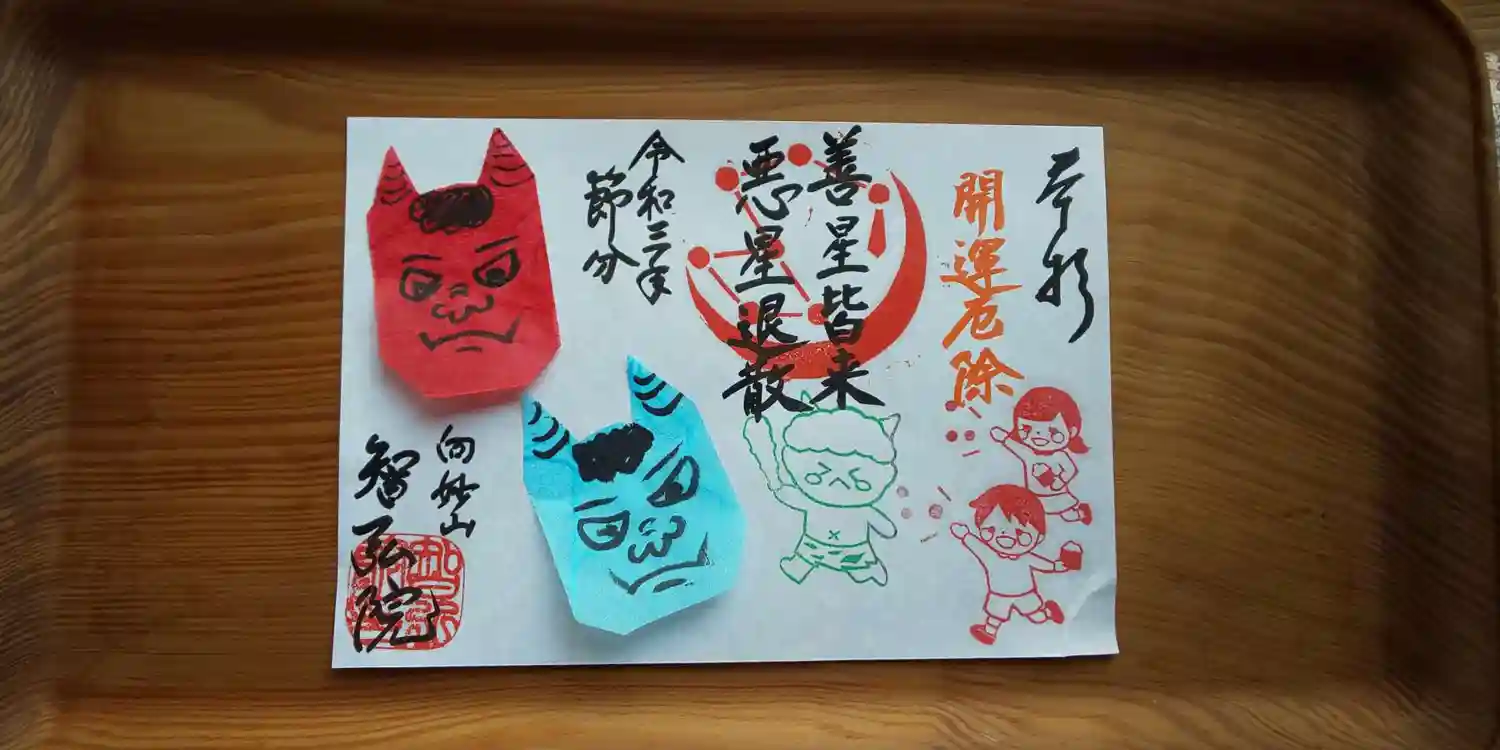 奉拝
開運厄除
善星皆来
悪星退散
令和三年
節分
向妙山
智弘院